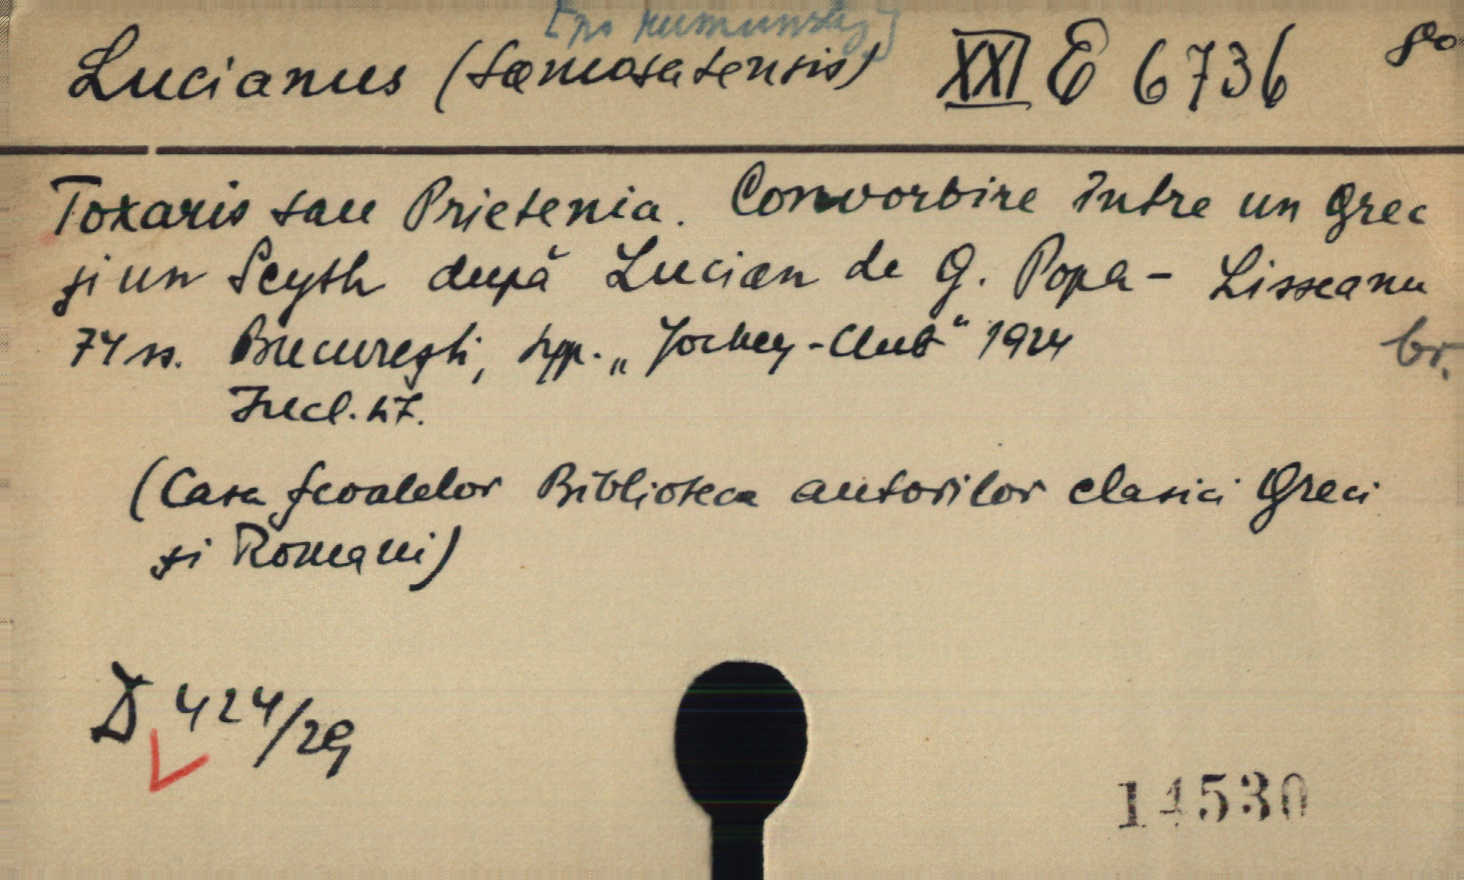 [po rumunsky]
Lucianus (samosatensis) XXI E 6736 8o
Toxaris sau Prietenia. Convorbire între un Grec
și un Scyth după Lucian de G. Popa-Lisseanu
74 ss. București, typ. „Jockey-Club" 1924
br.
(Casa școalelor Biblioteca autorilor clasici Greci
și Romani)
D 424/29
14530